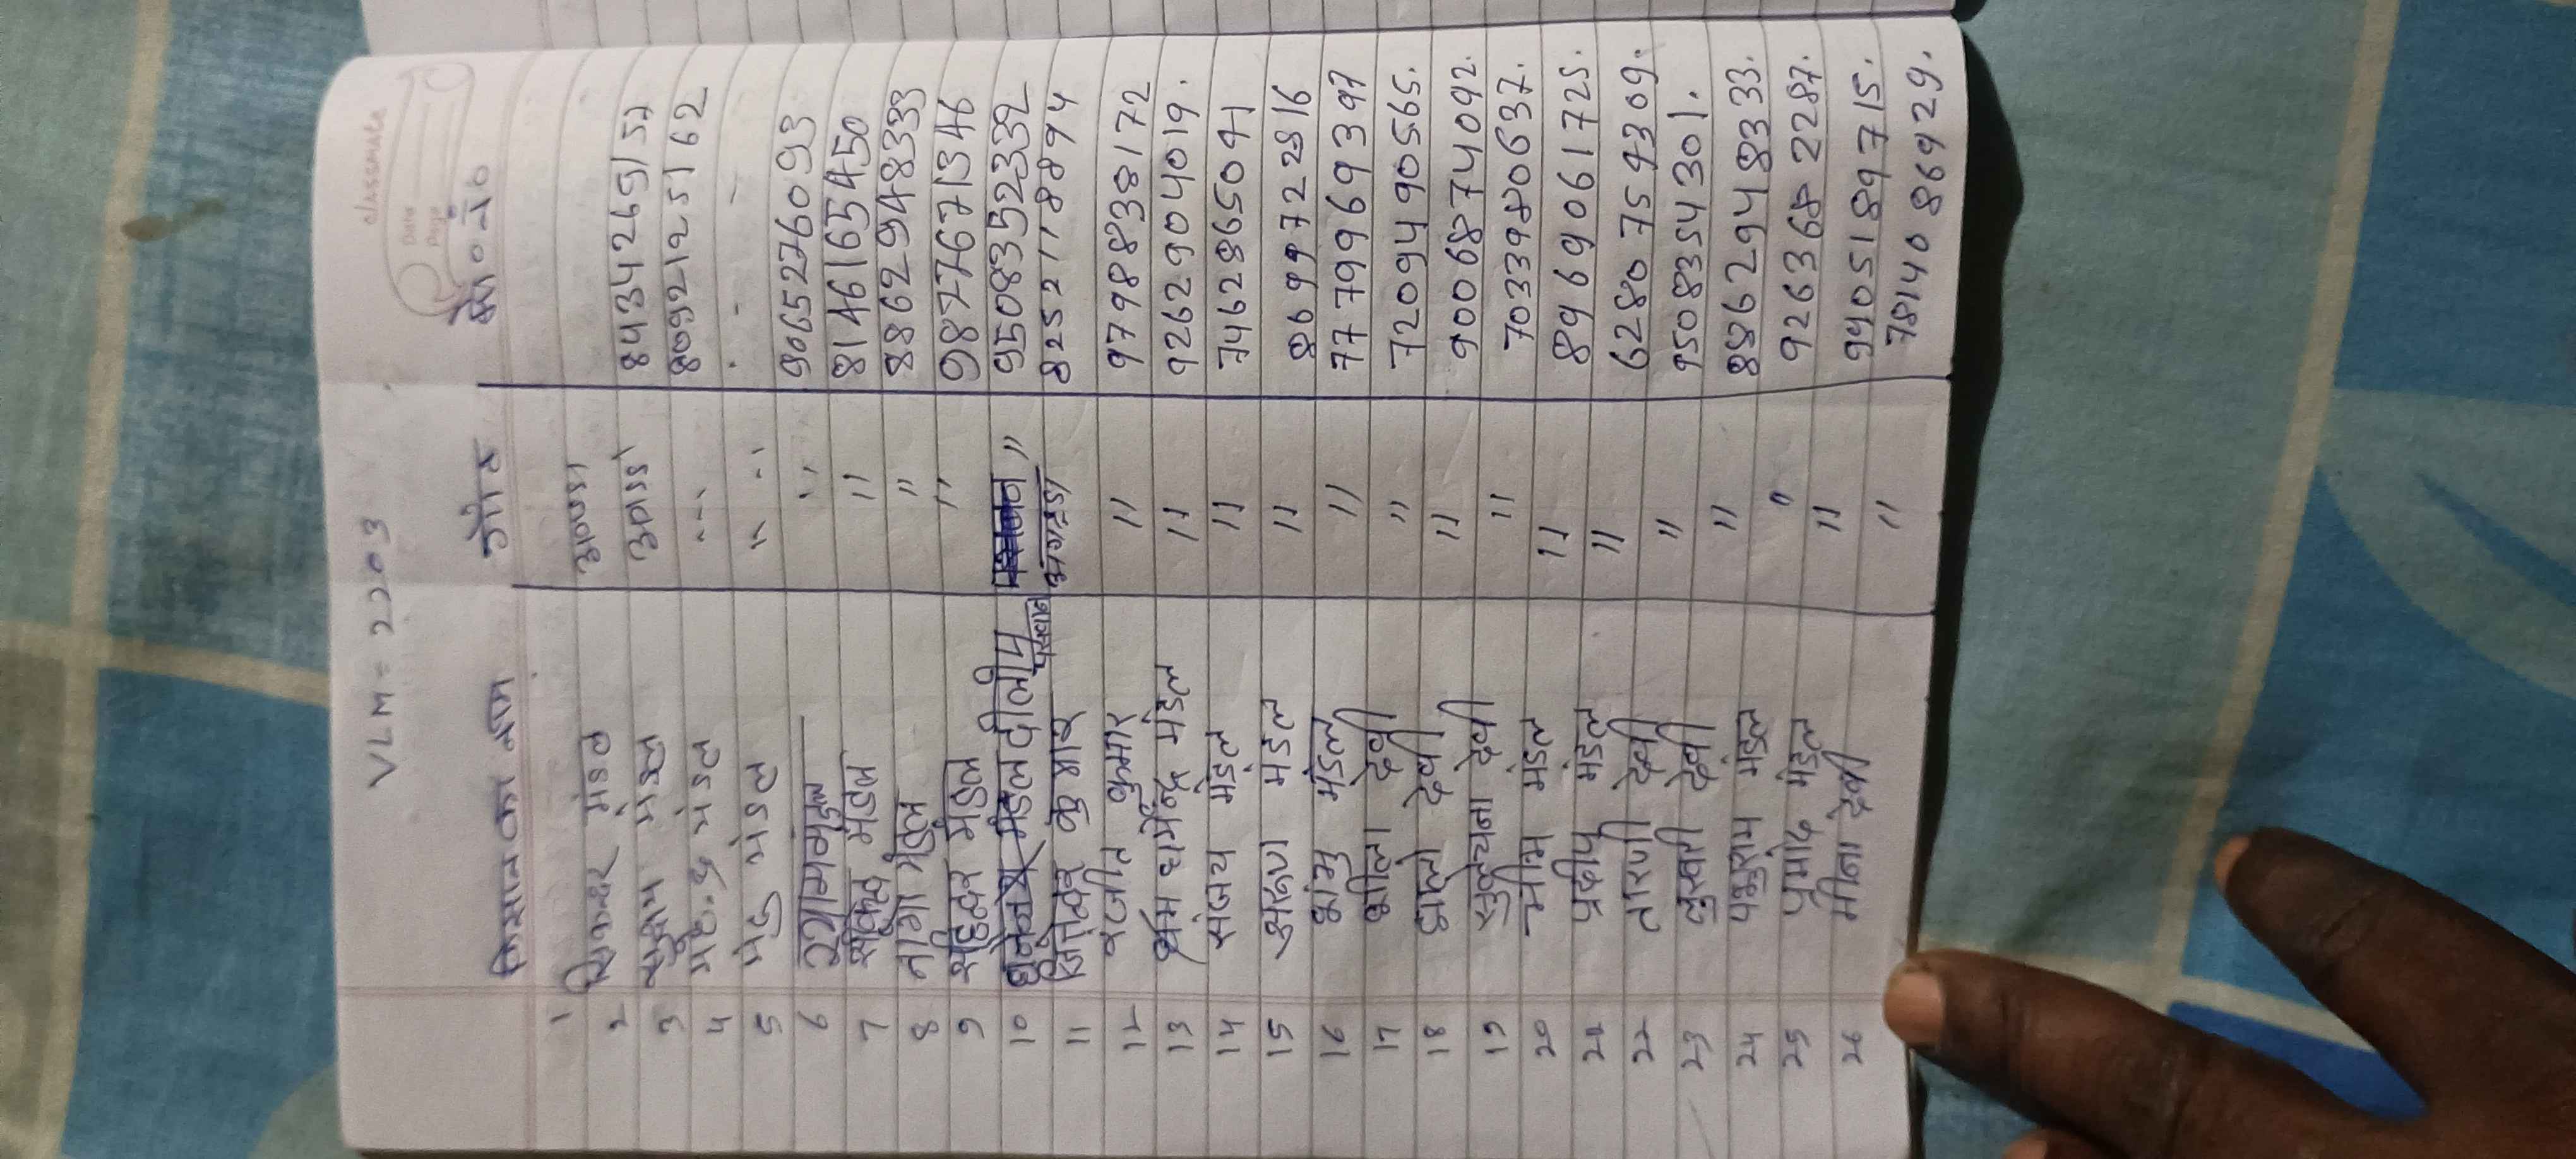 classmate
Date
Page
VLM = 2203
किसान का नाम गाँव मो० नं०
1
2 सिकन्दर मंडल अगड़ा
3 मंडल अगड़ा 8434265157
4 मंडल 〃 8092125162
5 मंडल 〃
6 〃 9065276093
7 मंडल 〃 8146165450
8 नागा मंडल 〃 8862948333
9 मंडल 〃 9877671346
10 मंडल दीलीप पासवान 〃 9508352332
11 जितेन्द्र कुमार अगड़ा 8252118894
12 रंजीत कुमार 〃 9798838172
13 धर्मेन्द्र मंडल 〃 9262904019.
14 संजय मंडल 〃 7462865041
15 अरुण मंडल 〃 8699972816
16 शंभु मंडल 〃 7779969397
17 शीला देवी 〃 7209490565.
18 देवी 〃 9006874092.
19 सुलेचना देवी 〃 7033980637.
20 भीम मंडल 〃 8969061725.
21 प्रदीप मंडल 〃 6280759309.
22 तारणी देवी 〃 9508354301.
23 देवी 〃 8862948333.
24 पशुराम मंडल 〃 9263682287.
25 प्रमोद मंडल 〃 9905189715.
26 मीना देवी 〃 7814086929.